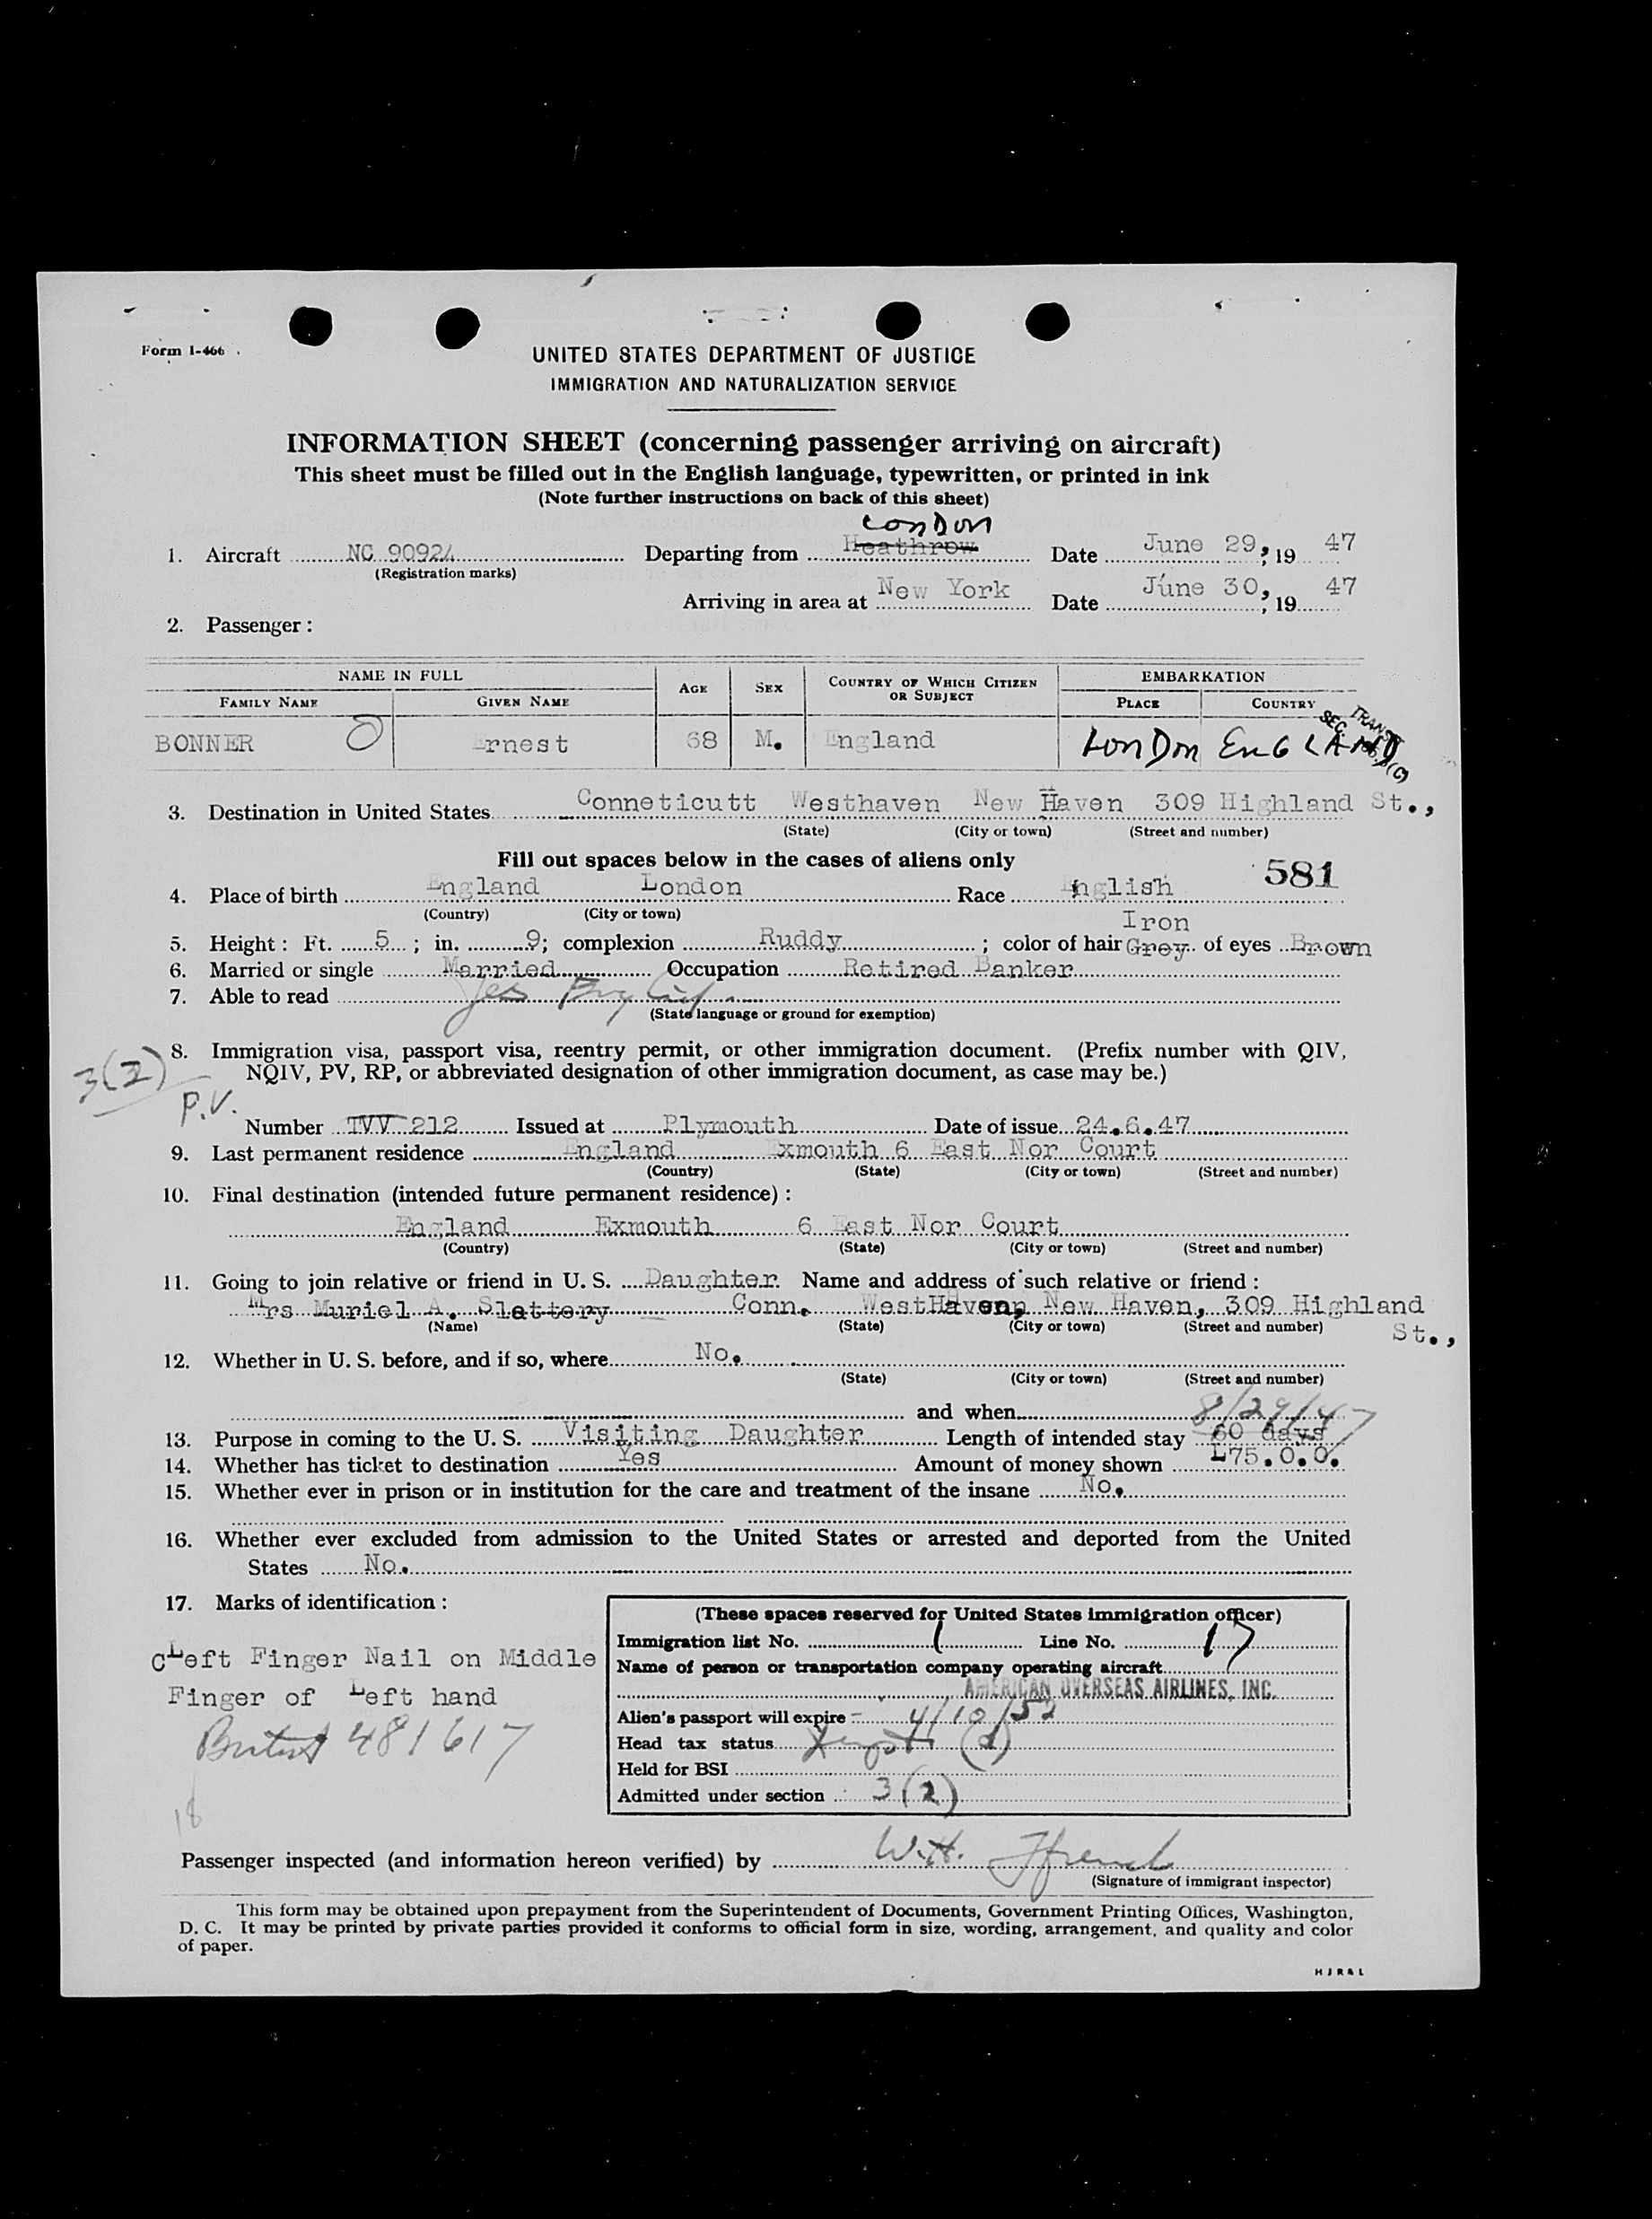 Form I-466
UNITED STATES DEPARTMENT OF JUSTICE
IMMIGRATION AND NATURALIZATION SERVICE
INFORMATION SHEET (concerning passenger arriving on aircraft)
This sheet must be filled out in the English language, typewritten, or printed in ink
(Note further instructions on back of this sheet)
London
1. Aircraft NC 90924 Departing from Heathrow Date June 29, 19 47
(Registration marks)
Arriving in area at New York Date June 30, 19 47
2. Passenger:
NAME IN FULL AGE SEX COUNTRY OF WHICH CITIZEN OR SUBJECT EMBARKATION
FAMILY NAME GIVEN NAME PLACE COUNTRY
SEC. TRANS
BONNER Ernest 68 M. England LonDon EnGLAND
3. Destination in United States Conneticutt Westhaven New Haven 309 Highland St.,
(State) (City or town) (Street and number)
Fill out spaces below in the cases of aliens only 581
4. Place of birth England London Race English
(Country) (City or town)
Iron
5. Height: Ft. 5; in. 9; complexion Ruddy; color of hair Grey of eyes Brown
6. Married or single Married Occupation Retired Banker
7. Able to read Yes English
(State language or ground for exemption)
3(2)
8. Immigration visa, passport visa, reentry permit, or other immigration document. (Prefix number with QIV,
NQIV, PV, RP, or abbreviated designation of other immigration document, as case may be.)
P.V.
Number TVV 212 Issued at Plymouth Date of issue 24.6.47
9. Last permanent residence England Exmouth 6 East Nor Court
(Country) (State) (City or town) (Street and number)
10. Final destination (intended future permanent residence):
England Exmouth 6 East Nor Court
(Country) (State) (City or town) (Street and number)
11. Going to join relative or friend in U. S. Daughter Name and address of such relative or friend:
Mrs Muriel A. Slattery Conn. WestHaven, New Haven, 309 Highland
(Name) (State) (City or town) (Street and number) St.,
12. Whether in U. S. before, and if so, where No.
(State) (City or town) (Street and number)
and when 8/29/47
13. Purpose in coming to the U. S. Visiting Daughter Length of intended stay 60 days
14. Whether has ticket to destination Yes Amount of money shown £75.0.0.
15. Whether ever in prison or in institution for the care and treatment of the insane No.
16. Whether ever excluded from admission to the United States or arrested and deported from the United
States No.
17. Marks of identification:
cLeft Finger Nail on Middle
Finger of Left hand
British 481617
18
(These spaces reserved for United States immigration officer)
Immigration list No. 1 Line No. 17
Name of person or transportation company operating aircraft
AMERICAN OVERSEAS AIRLINES, INC.
Alien's passport will expire 4/10/52
Head tax status (d)
Held for BSI
Admitted under section 3(2)
Passenger inspected (and information hereon verified) by W.H. Ffrench
(Signature of immigrant inspector)
This form may be obtained upon prepayment from the Superintendent of Documents, Government Printing Offices, Washington,
D. C. It may be printed by private parties provided it conforms to official form in size, wording, arrangement, and quality and color
of paper.
HJR&L